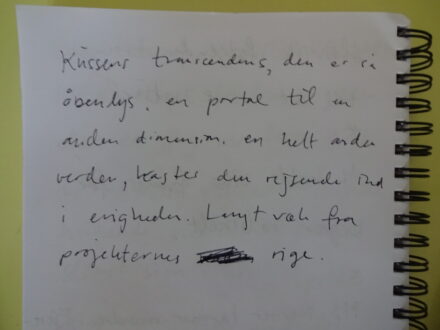 Kussens transcendens, den er så
åbenlys. en portal til en
anden dimension. en helt anden
verden, kaster den rejsende ind
i evigheden. Langt væk fra
projekternes rige.